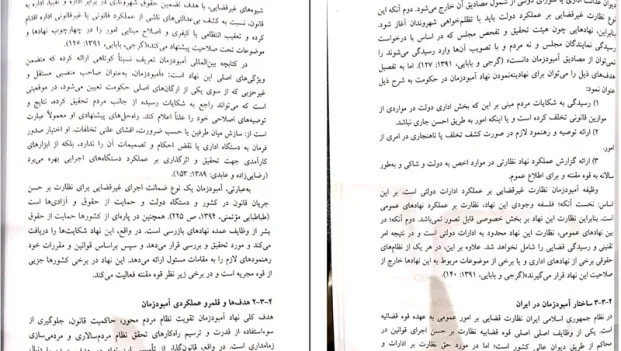 شیوه‌های غیرقضایی، با هدف تضمین حقوق شهروندی در برابر اداره و تقید اداره به
قانون، نسبت به کشف بی‌عدالتی‌های ناشی از عملکرد قانونی یا غیرقانونی اداره اقدام
کرده و تعقیب انتظامی یا کیفری و اصلاح مبنایی امور را در چهارچوب نهادها و
موضوعات تحت صلاحیت پیشنهاد می‌کند»(گرجی و بابایی، ۱۳۹۱: ۱۲۶).
در کتابچه بین‌المللی آمبودزمان تعریف نسبتاً کوتاهی ارائه کرده که متضمن
ویژگی‌های اصلی این نهاد است: «آمبودزمان، به‌عنوان صاحب منصبی مستقل و
غیرحزبی که از سوی یکی از ارکان‌های اصلی حکومت تعیین می‌شود، در موقعیتی
است که می‌تواند راجع به شکایات رسیده از جانب مردم تحقیق کرده، نتایج و
توصیه‌های اصلاحی خود را علناً اعلام کند. راه‌حل‌های پیشنهادی او معمولاً عبارت
است از: سازش میان طرفین یا حسب ضرورت، افشای علنی تخلفات. او اختیار صدور
فرمان به دستگاه اداری یا نقض احکام و تصمیمات آن را ندارد، بلکه از ابزارهای
کارآمدی جهت تحقیق و اثرگذاری بر عملکرد دستگاه‌های اجرایی بهره می‌برد
(رضایی‌زاده و عابدی، ۱۳۸۹: ۱۵۳).
به‌عبارتی، آمبودزمان یک نوع ضمانت اجرای غیرقضایی برای نظارت بر حسن
جریان قانون در کشور و دستگاه دولت و حمایت از حقوق و آزادی‌ها است
(طباطبایی مؤتمنی، ۱۳۹۴، ص ۲۲۵). همچنین در پاره‌ای از کشورها حمایت از حقوق
بشر از وظایف عمده نهادهای بازرسی است. در واقع، این نهاد شکایت‌ها را دریافت
می‌کند و مورد تحقیق و بررسی قرار می‌دهد و سپس براساس قوانین و مقررات خود
رهنمودهای لازم را به مقامات مسئول ارائه می‌دهد. این نهاد در برخی کشورها جزیی
از قوه مجریه است و در برخی زیر نظر قوه مقننه فعالیت می‌کند.
۲-۳-۴ هدف‌ها و قلمرو عملکردی آمبودزمان
هدف کلی نهاد آمبودزمان تقویت نظام مردم محور، حاکمیت قانون، جلوگیری از
سوءاستفاده از قدرت و ترسیم راه‌کارهای تحقق نظام مردم‌سالاری و مردمی‌سازی
زمامداری است. در واقع، قانون‌گذار از تأسیس این نهاد
نوع نظارت غیرقضایی بر عملکرد دولت باید با تظلم‌خواهی شهروندان آغاز شود.
بنابراین، نهادهایی چون هیئت تحقیق و تفحص مجلس که بر اساس یا درخواست
رسیدگی نمایندگان مجلس و نه مردم و با تصویب آن‌ها وارد رسیدگی می‌شوند را
نمی‌توان از مصادیق آمبودزمان دانست» (گرجی و بابایی، ۱۳۹۱: ۱۲۷). اما به تفصیل
هدف‌های ذیل را می‌توان برای نهادینه‌نمودن نهاد آمبودزمان در حکومت به شرح ذیل
عنوان نمود:
۱) رسیدگی به شکایات مردم مبنی بر این که بخش اداری دولت در مواردی از
موازین قانونی تخلف کرده است و یا اینکه امور به طریق احسن جاری نباشد.
۲) ارائه توصیه و رهنمود لازم در صورت کشف تخلف یا ناهنجاری در امری از
امور.
۳) ارائه گزارش عملکرد نهاد نظارتی در موارد اخص به دولت و شاکی و به‌طور
سالانه به قوه مقننه و برای اطلاع عموم.
وظیفه آمبودزمان نظارت غیرقضایی بر عملکرد ادارات دولتی است. بر این
اساس: نخست آنکه؛ فلسفه وجودی این نهاد، نظارت بر عملکرد نهادهای عمومی
است. بنابراین نظارت این نهاد بر بخش خصوصی قابل تصور نمی‌باشد. دوم آنکه؛ در
بین نهادهای عمومی، نظارت این نهاد محدود به ادارات دولتی است و در نتیجه امر
تقنینی و رسیدگی قضایی را شامل نخواهد شد. علاوه بر این، در هر یک از نظام‌های
حقوقی برخی از نهادهای اداری و یا برخی از موضوعات مربوط به این نهادها خارج از
صلاحیت این نهاد قرار می‌گیرند»(گرجی و بابایی، ۱۳۹۱: ۱۴۰).
۳-۳-۴ ساختار آمبودزمان در ایران
در نظام جمهوری اسلامی ایران نظارت قضایی بر امور عمومی به عهده قوه قضائیه
است. یکی از وظایف اصلی اصلی قوه قضاییه نظارت بر حسن اجرای قوانین در
محاکم از طریق دیوان عالی کشور است؛ اما در مورد حق نظارت بر ادارات و